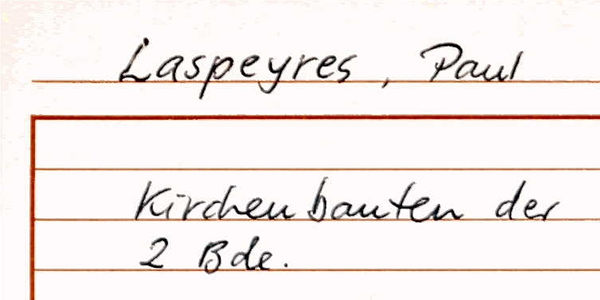 Laspeyres, Paul
Kirchenbauten der
2 Bde.